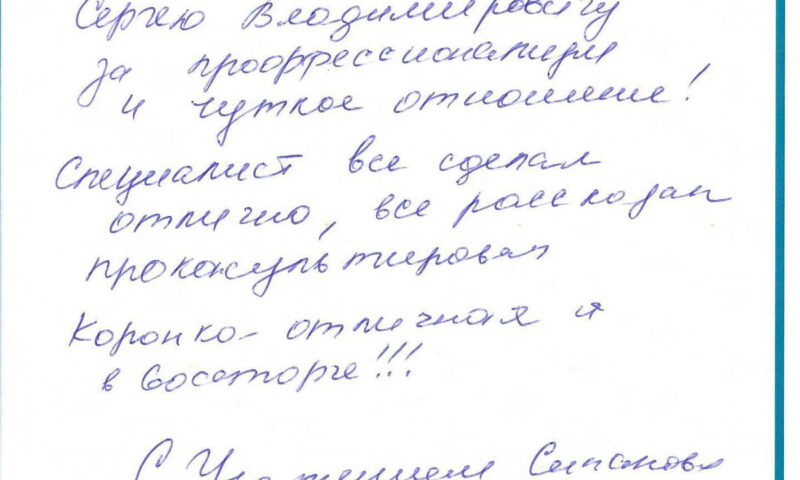 Сергею Владимировичу
за профессионализм
и чуткое отношение!
Специалист все сделал
отлично, все рассказал
проконсультировал
Коронка - отличная я
в восторге!!!
С Уважением